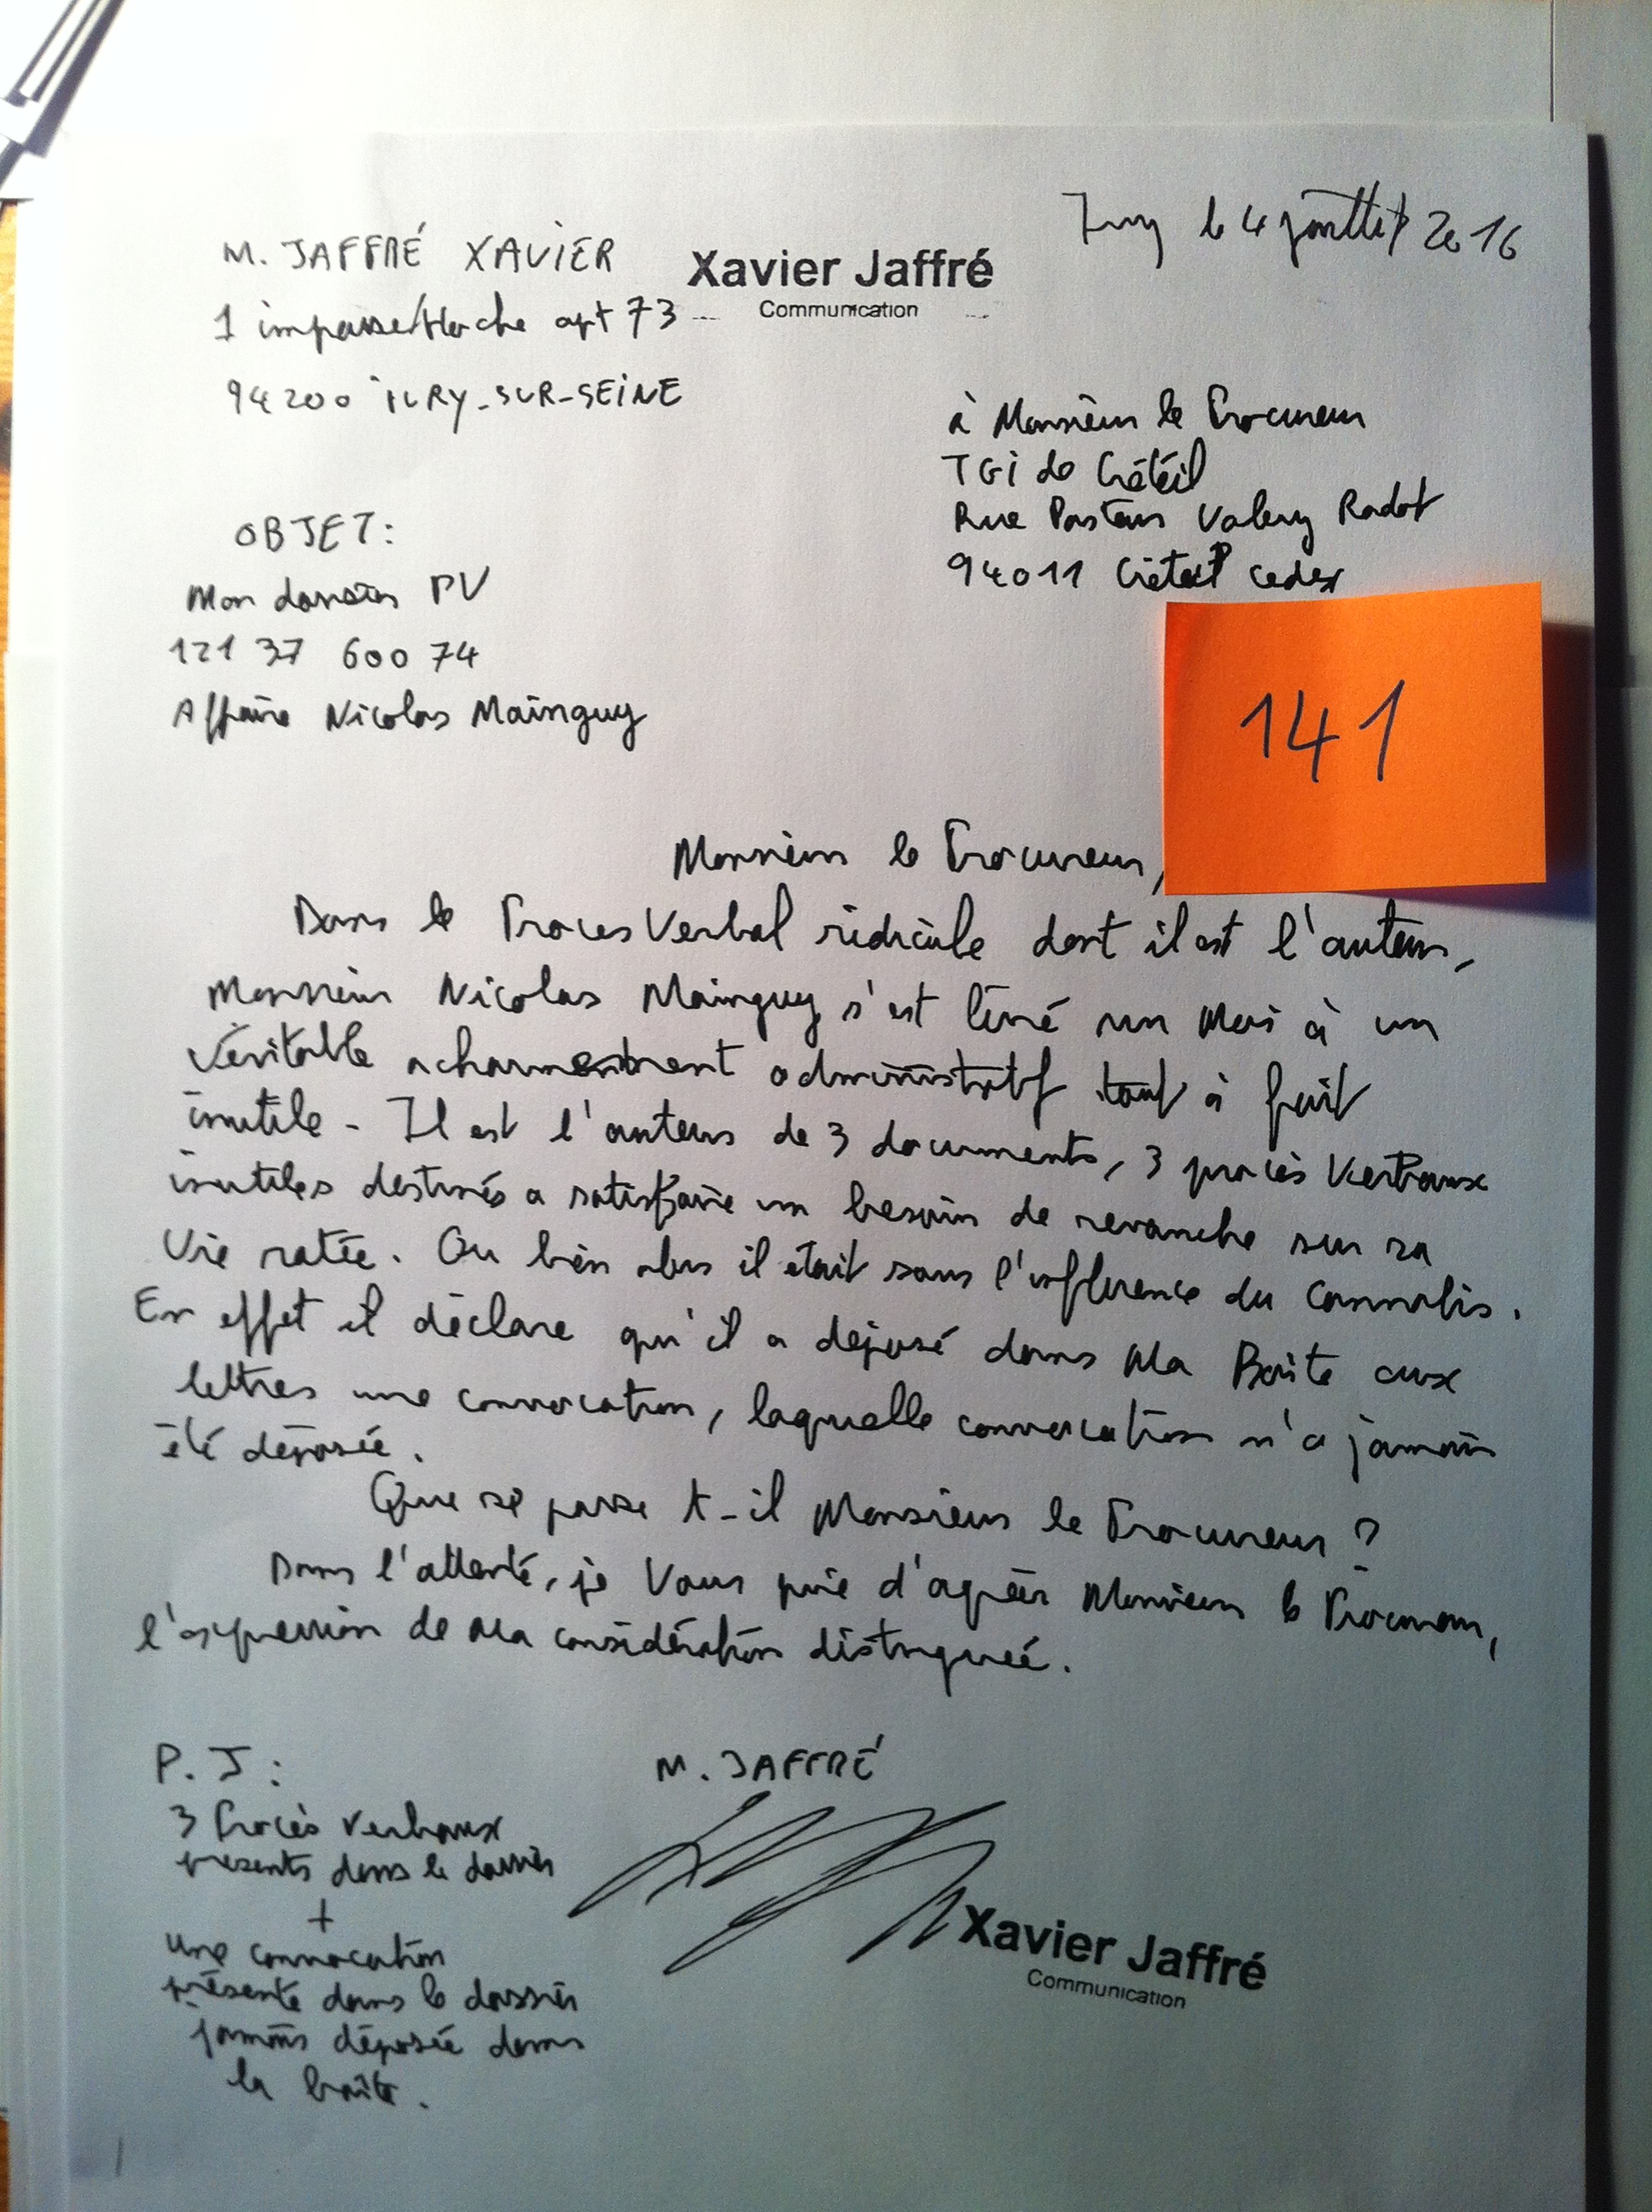 Ivry le 4 juillet 2016
M. JAFFRÉ XAVIER
Xavier Jaffré
Communication
1 impasse Hoche apt 73
94200 IVRY-SUR-SEINE
à Monsieur le Procureur
TGI de Créteil
Rue Pasteur Valery Radot
94011 Créteil cedex
OBJET:
Mon dossier PV
121 37 600 74
Affaire Nicolas Mainguy
141
Monsieur le Procureur,
Dans le Proces Verbal ridicule dont il est l'auteur,
Monsieur Nicolas Mainguy s'est livré un Mois à un
véritable acharnement administratif tout à fait
inutile - Il est l'auteur de 3 documents, 3 procès Verbaux
inutiles destinés a satisfaire un besoin de revanche sur sa
Vie ratée. Ou bien alors il était sous l'influence du Cannabis.
En effet il déclare qu'il a déposé dans Ma Boite aux
lettres une convocation, laquelle convocation n'a jamais
été déposée.
Que se passe t-il Monsieur le Procureur ?
Dans l'attente, je Vous prie d'agréer Monsieur le Procureur,
l'expression de Ma considération distinguée.
P.J:
M. JAFFRÉ
3 Procès Verbaux
présents dans le dossier
+
Une convocation
présente dans le dossier
jamais déposée dans
la boîte.
Xavier Jaffré
Communication